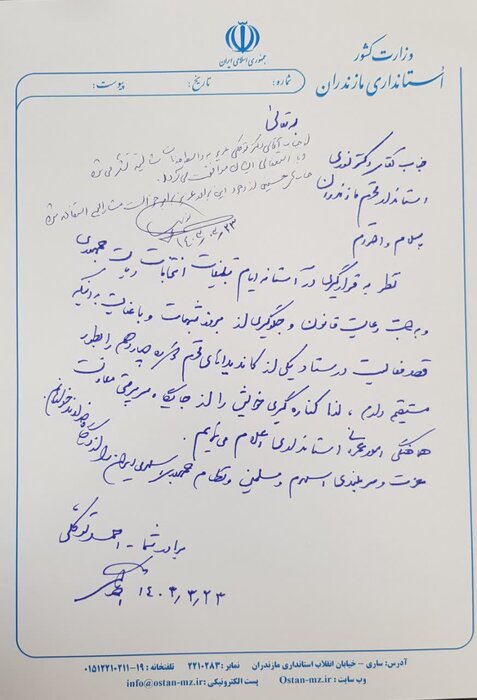 وزارت کشور
استانداری مازندران
جمهوری اسلامی ایران
شماره: تاریخ: پیوست:
بسمه تعالی
جناب آقای دکتر
استاندار محترم مازندران
سلام و احترام
از جناب آقای دکتر توکلی عزیز به واسطه تشکر می شود
و با استعفای ایشان موافقت می گردد.
۱۴۰۳/۳/۲۳
نظر به قرارگیری در آستانه ایام تبلیغات انتخابات ریاست جمهوری
و به جهت رعایت قانون و جلوگیری از بروز شبهات و با عنایت به اینکه
قصد فعالیت در ستاد یکی از کاندیداهای محترم دوره چهاردهم را بطور
مستقیم دارم، لذا کناره گیری خویش را از جایگاه سرپرستی معاونت
هماهنگی امور عمرانی استانداری اعلام می نمایم.
عزت و سربلندی اسلام و مسلمین و نظام جمهوری اسلامی ایران را از درگاه خداوند خواهانم.
برادر شما - احمد توکلی
۱۴۰۳/۳/۲۳
آدرس: ساری - خیابان انقلاب استانداری مازندران نمابر: ۲۲۱۰۲۸۳ تلفنخانه: ۱۹-۰۱۵۱۲۲۱۰۲۱۱
وب سایت: Ostan-mz.ir پست الکترونیکی: info@ostan-mz.ir